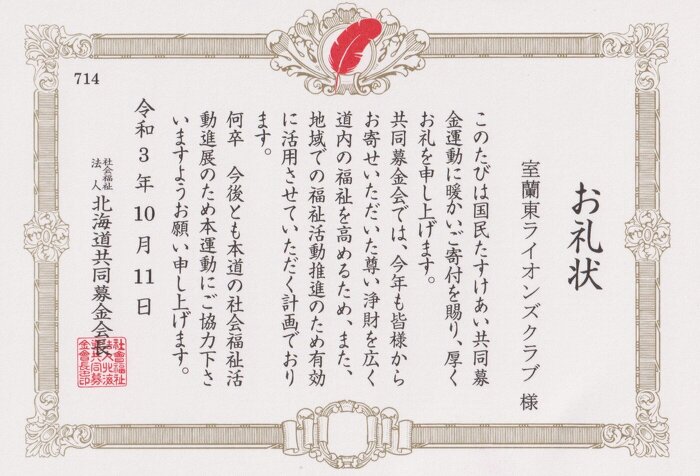 714
お礼状
室蘭東ライオンズクラブ 様
このたびは国民たすけあい共同募
金運動に暖かいご寄付を賜り、厚く
お礼を申し上げます。
共同募金会では、今年も皆様から
お寄せいただいた尊い浄財を広く
道内の福祉を高めるため、また、
地域での福祉活動推進のため有効
に活用させていただく計画でおり
ます。
何卒 今後とも本道の社会福祉活
動進展のため本運動にご協力下さ
いますようお願い申し上げます。
令和3年10月11日
社会福祉
法人 北海道共同募金会長
社會福祉
法人北海
道共同募
金會長印